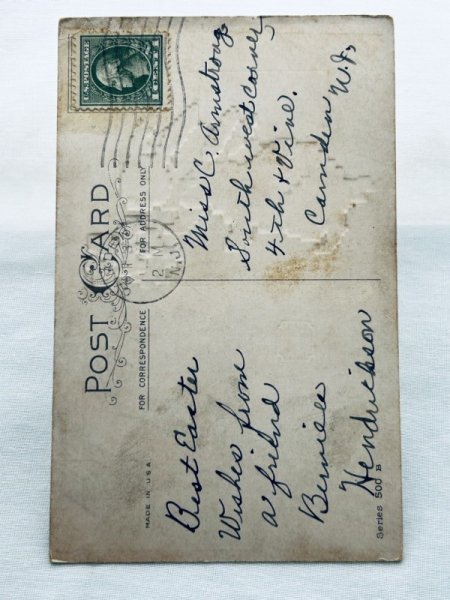 U.S. POSTAGE
1 CENT 1
POST CARD
MADE IN U.S.A
FOR CORRESPONDENCE
FOR ADDRESS ONLY
2 M
N.J.
Best Easter
Wishes from
a friend
Hendrickson
Miss C. Armstrong
Southwest Corner
4th & Vine.
Camden N.J.
Series 500 B